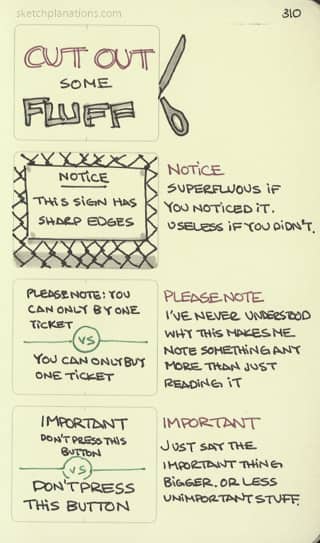 sketchplanations.com
310
CUT OUT
SOME
FLUFF
NOTICE
THIS SIGN HAS
SHARP EDGES
NOTICE
SUPERFLUOUS IF
YOU NOTICED IT.
USELESS IF YOU DIDN'T.
PLEASE NOTE: YOU
CAN ONLY BY ONE
TICKET
VS
YOU CAN ONLY BUY
ONE TICKET
PLEASE NOTE
I'VE NEVER UNDERSTOOD
WHY THIS MAKES ME
NOTE SOMETHING ANY
MORE THAN JUST
READING IT
IMPORTANT
DON'T PRESS THIS
BUTTON
VS
DON'T PRESS
THIS BUTTON
IMPORTANT
JUST SAY THE
IMPORTANT THING
BIGGER. OR LESS
UNIMPORTANT STUFF.